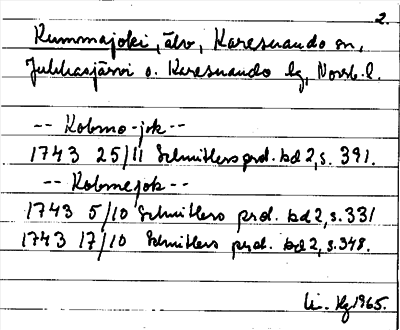 2.
Kummajoki, älv, Karesuando sn,
Jukkasjärvi o. Karesuando lg, Norrb. l.
-- Kobmo-jok --
1743 25/11 Schnitlers prot. bd 2, s. 391.
-- Kobmejok --
1743 5/10 Schnitlers prot. bd 2, s. 331
1743 17/10 Schnitlers prot. bd 2, s. 348.
1965.